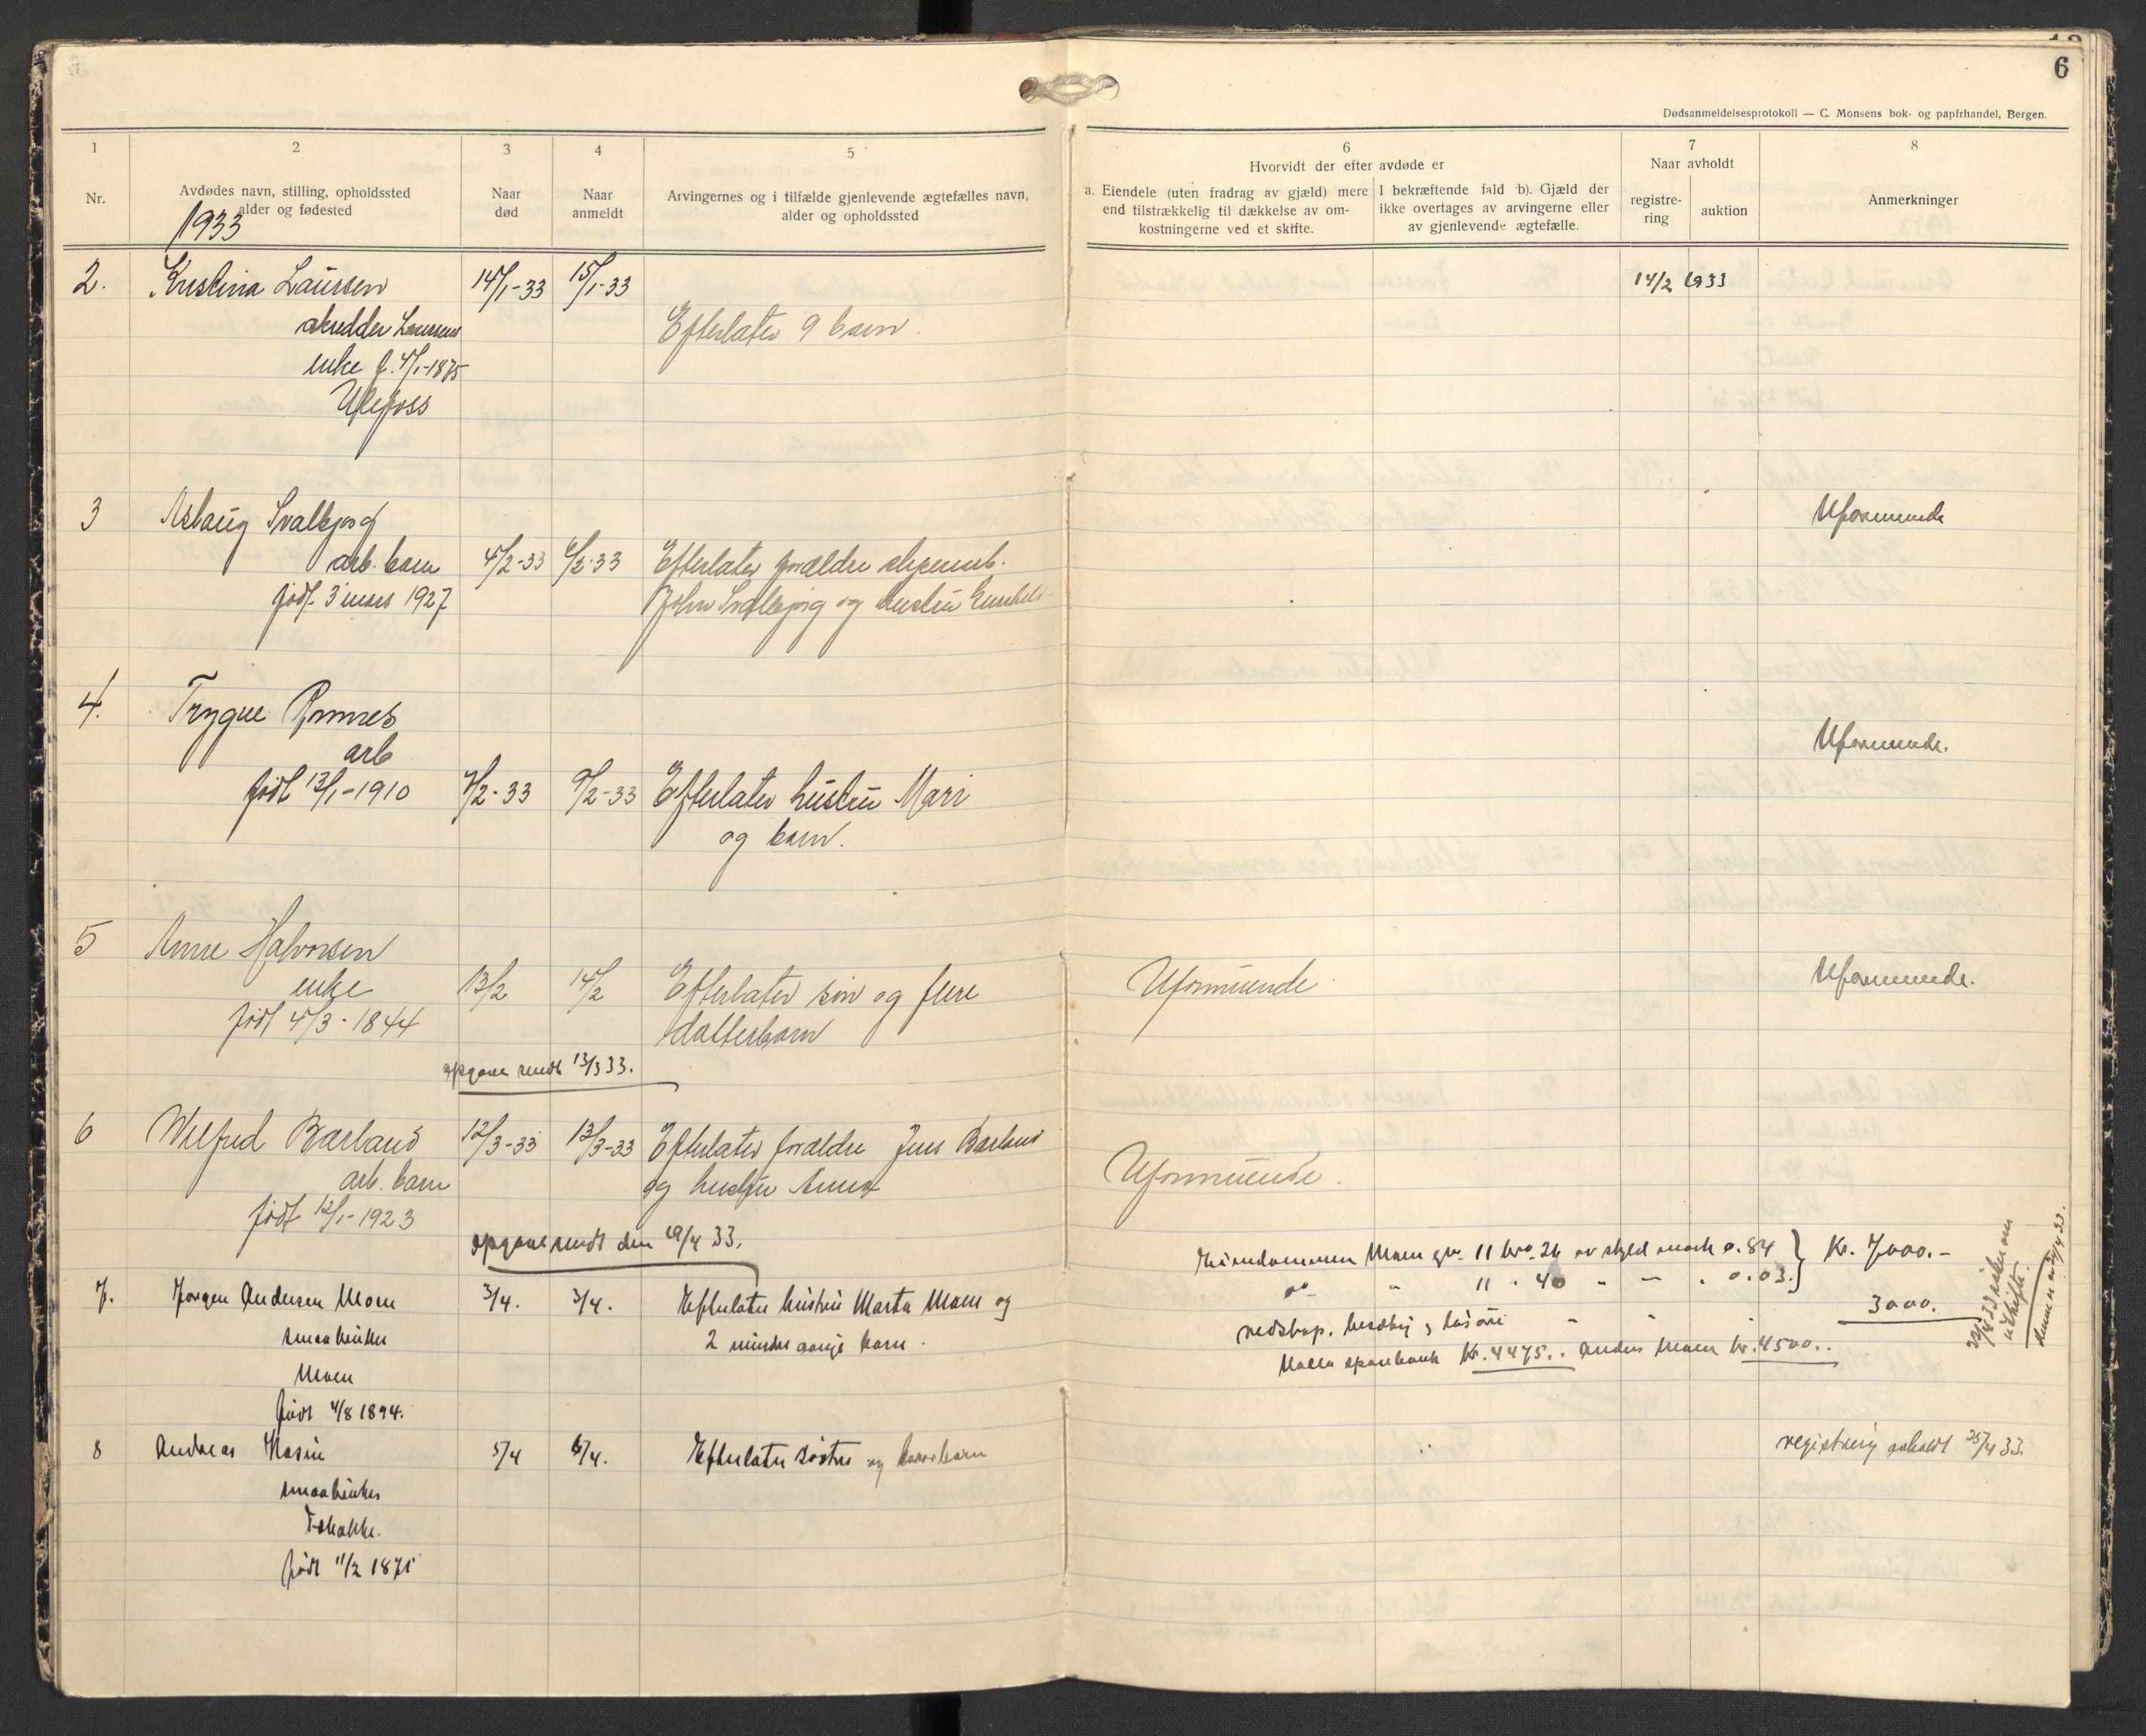 6
Dødsanmeldelsesprotokoll — C. Monsens bok- og papirhandel, Bergen.
1
Nr.
2
Avdødes navn, stilling, opholdssted
alder og fødested
1933
3
Naar
død
4
Naar
anmeldt
5
Arvingernes og i tilfælde gjenlevende ægtefælles navn,
alder og opholdssted
6
Hvorvidt der efter avdøde er
a. Eiendele (uten fradrag av gjæld) mere
end tilstrækkelig til dækkelse av om-
kostningerne ved et skifte.
I bekræftende fald b). Gjæld der
ikke overtages av arvingerne eller
av gjenlevende ægtefælle.
7
Naar avholdt
registre-
ring
auktion
8
Anmerkninger
2. Kristina Laursen 14/1-33 15/1-33 14/2 1933
skredder Laursens
Efterlater 9 barn.
enke f. 4/1-1875
Ulefoss
3 Aslaug Svalbjorg Uformuende
arb. barn 4/2-33 6/2-33 Efterlater forældre
født 3 mars 1927 John Svalbjorg og hustru
4. Trygve Romnes Uformuende.
arb
født 13/1-1910 7/2-33 9/2-33 Efterlater hustru Mari
og barn.
5 Anne Halvorsen
enke 13/2 14/2 Efterlater søn og flere Uformuende Uformuende.
født 4/3-1844 datterbarn
opgave sendt 13/3 33.
6 Wilfred Bærland 12/3-33 13/3-33 Efterlater forældre Jens Bærland
arb. barn og hustru Anna Uformuende.
født 12/1-1923
opgave sendt den 19/4 33.
Eiendommen Moen gr. 11 bro. 26 av skyld mark 0.84 } Kr. 7000.-
do " 11 " 40 " — . 0.03. }
7. Jørgen Andersen Moen 3/4. 3/4. Efterlater hustru Marta Moen og
redskap, besetning, løsøre " " 3000.
smaabruker 2 mindreaarige barn.
Holla sparebank Kr. 4475.. Anders Moen kr. 4500..
Moen
født 4/8 1894.
8 Andreas 5/4 6/4. Efterlater søstre og barnebarn registrering avholdt 25/4 33.
smaabruker
født 11/2 1871